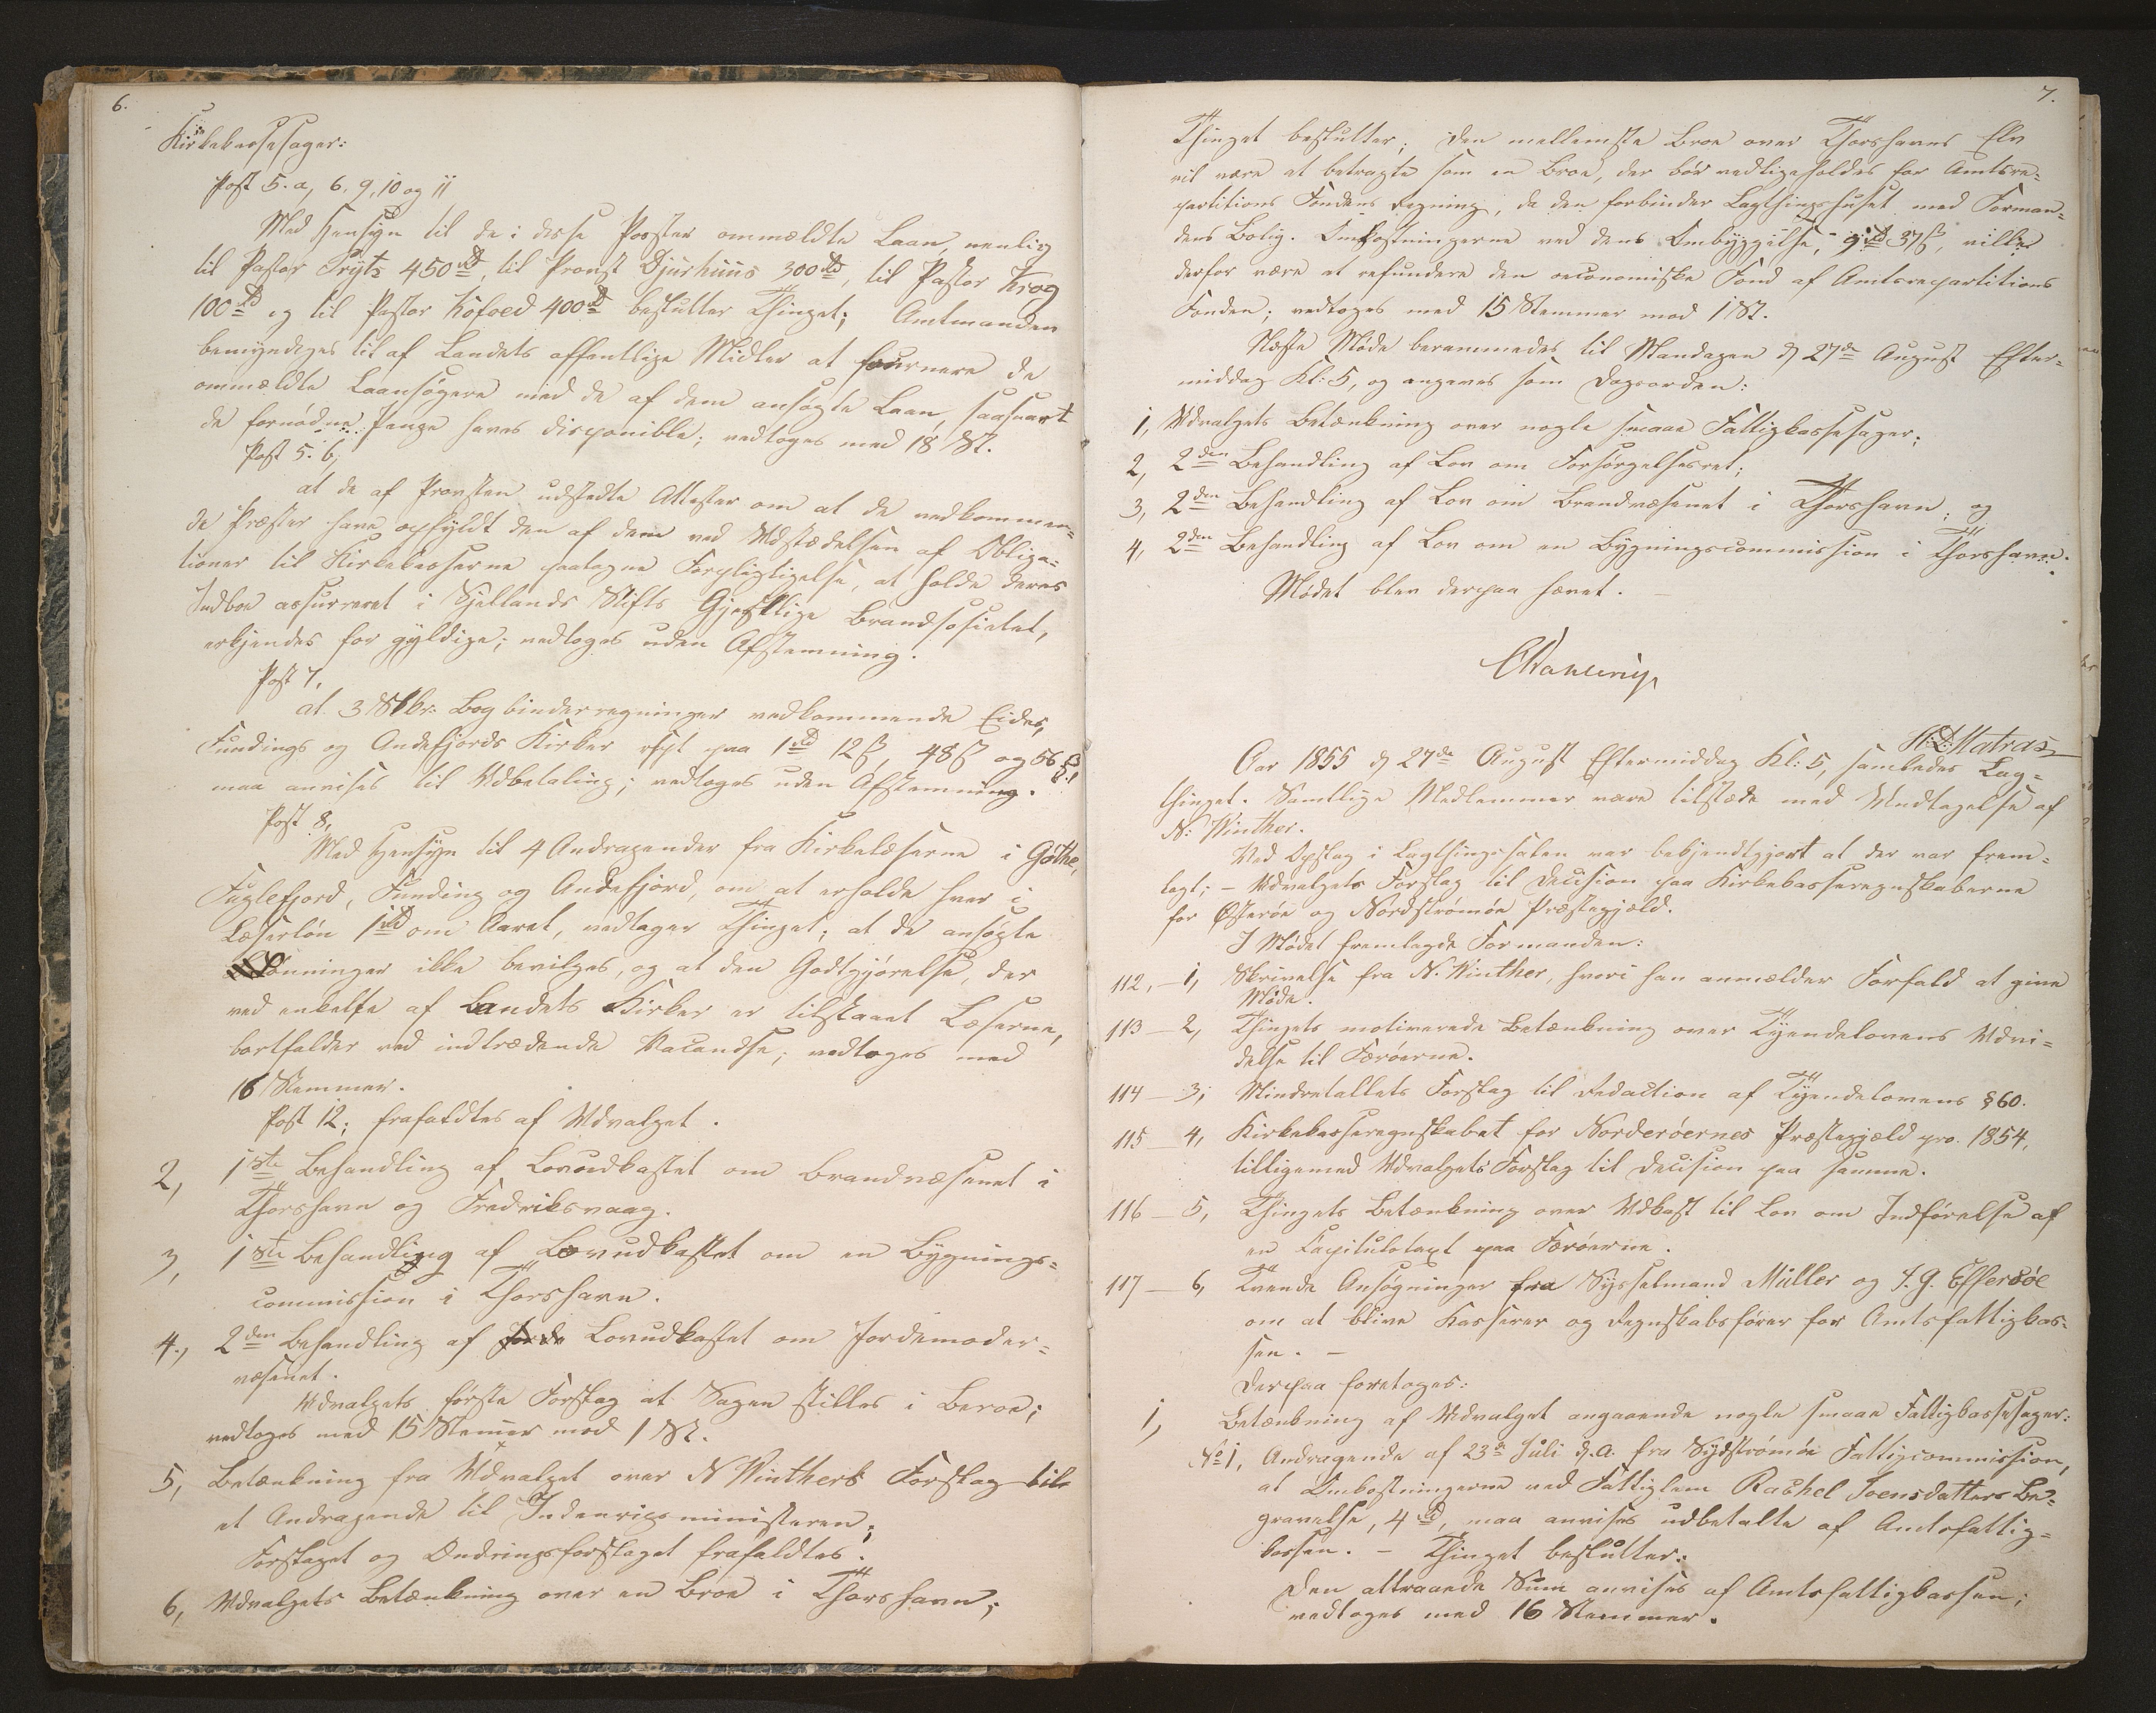 6.
Kirkekassesager:
Post 5. a, 6, 9, 10 og 11
Med Hensyn til de i disse Poster ommeldte Laan, nemlig
til Pastor Tryts 450 rd, til Provst Djurhuus 300 rd, til Pastor Krog
100 rd og til Pastor Kofoed 400 rd beslutter Thinget; Amtmanden
bemyndiges til af Landets offentlige Midler at fournere de
ommeldte Laansøgere med de af dem ansøgte Laan, saasnart
de fornødne Penge haves disponible; vedtoges med 18 St.
Post 5. b,
at de af Provsten udstedte Attester om at de vedkommen=
de Præster have opfyldt den af dem ved Udstædelsen af Obliga=
tioner til Kirkekasserne paatagne Forpligtigelse, at holde deres
Indboe assurreret i Sjellands Stifts Gjestlige Brandsosietet,
erkjendes for gyldige; vedtoges uden Afstemning.
Post 7,
at 3 Stkr. Bogbinderregninger vedkommende Eides,
Fundings og Andefjords Kirker resp paa 1 rd 12 ß, 48 ß og 56 ß
maa anvises til Udbetaling; vedtoges uden Afstemning.
Post 8,
Med Hensyn til 4 Andragender fra Kirkelæserne i Gøthe,
Fuglefjord, Funding og Andefjord, om at erholde hver i
Læserløn 1 rd om Aaret, vedtager Thinget; at de ansøgte
Lønninger ikke bevilges, og at den Godtgjørelse, der
ved enkelte af Landets Kirker er tilstaaet Læserne,
bortfalder ved indtrædende Vacandse; vedtoges med
16 Stemmer.
Post 12; frafaldtes af Udvalget.
2, 1ste Behandling af Lovudkastet om Brandvæsenet i
Thorshavn og Fredriksvaag.
3, 1ste Behandling af Lovudkastet om en Bygnings=
commission i Thorshavn.
4., 2den Behandling af Lovudkastet om Jordemoder=
væsenet.
Udvalgets første Forslag at Sagen stilles i Beroe;
vedtoges med 15 Stemer mod 1 St.
5, Betænkning fra Udvalget over N Winthers Forslag til
et Andragende til Indenrigsministeren;
Forslaget og Ændringsforslaget frafaldtes.
6, Udvalgets Betænkning over en Broe i Thorshavn;
7.
Thinget beslutter; den mellemste Broe over Thorshavns Elv
vil være at betragte som en Broe, der bør vedligeholdes for Amtsre=
partitions Fondens Regning, da den forbinder Lagthingshuset med Forman=
dens Bolig. Omkostningerne ved dens Ombyggelse, 9 rd 37 ß, ville
derfor være at refundere den oeconomiske Fond af Amtsrepartitions
Fonden; vedtoges med 15 Stemmer mod 1 St.
Næste Møde berammedes til Mandagen d 27de August Efter=
middag Kl: 5, og angaves som Dagsorden:
1, Udvalgets Betænkning over nogle smaae Fattigkassesager;
2, 2den Behandling af Lov om Forsørgelsesret;
3, 2den Behandling af Lov om Brandvæsenet i Thorshavn; og
4, 2den Behandling af Lov om en Bygningscommission i Thorshavn.
Mødet blev derpaa hævet. —
CDahlerup
H: D: Matras
Aar 1855 d 27de August Eftermiddag Kl: 5, samledes Lag=
thinget. Samtlige Medlemmer vare tilstæde med Undtagelse af
N: Winther.
Ved Opslag i Lagthingssalen var bekjendtgjort at der var frem=
lagt; – Udvalgets Forslag til Decision paa Kirkekasseregnskaberne
for Østerøe og Nordstrømøe Præstegjæld.
I Mødet fremlagde Formanden:
112, – 1, Skrivelse fra N. Winther, hvori han anmælder Forfald at give
Møde.
113 – 2, Thingets motiverede Betænkning over Tyendelovens Udvi=
delse til Færøerne.
114 – 3, Mindretallets Forslag til Redaction af Tyendelovens § 60.
115 – 4, Kirkekasseregnskabet for Norderøernes Præstegjæld pro. 1854,
tilligemed Udvalgets Forslag til Decision paa samme.
116 – 5, Thingets Betænkning over Udkast til Lov om Indførelse af
en Capitulstaxt paa Færøerne.
117 – 6, Tvende Ansøgninger fra Sysselmand Müller og J. G. Effersöe
om at blive Kasserer og Regnskabsfører for Amtsfattigkas=
sen. –
Derpaa foretoges:
1, Betænkning af Udvalget angaaende nogle smaae Fattigkassesager:
No 1, Andragende af 23de Juli d. A. fra Sydstrømøe Fattigcommission,
at Omkostningerne ved Fattiglem Rachel Joensdatters Be=
gravelse, 4 rd, maa anvises udbetalte af Amtsfattig=
kassen. – Thinget beslutter:
Den attraaede Sum anvises af Amtsfattigkassen;
vedtoges med 16 Stemmer.